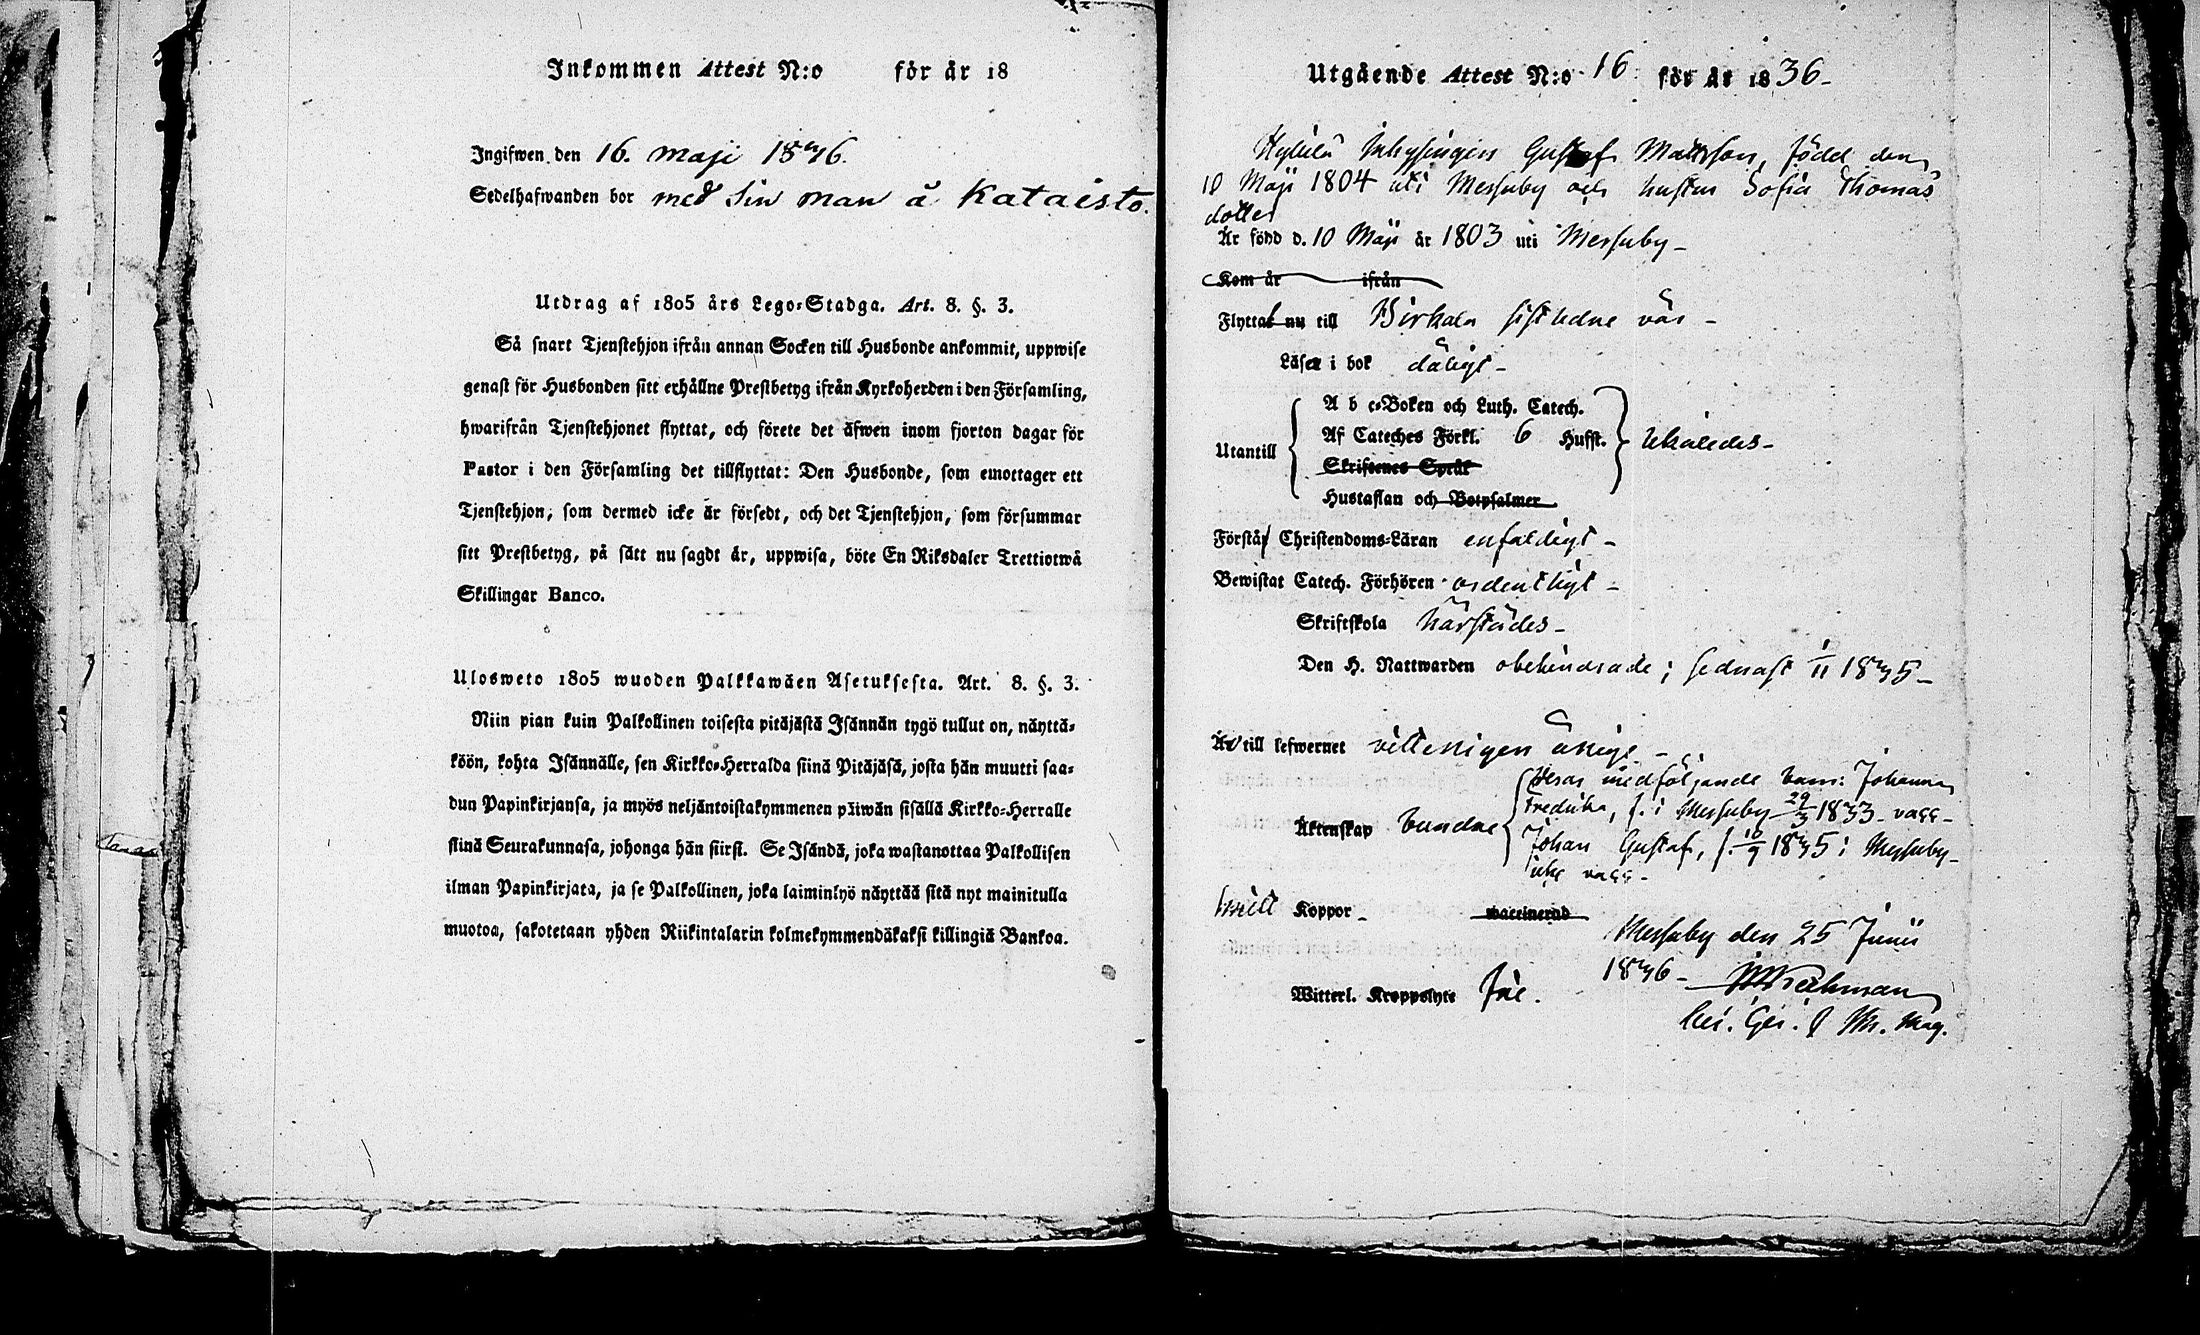 Inkommen Attest N:o för år 18
Ingifwen den 16. maji 1836.
Sedelhafwanden bor med sin man å Kataisto.
Utdrag af 1805 års Lego-Stadga. Art. 8. §. 3.
Så snart Tjenstehjon ifrån annan Socken till Husbonde ankommit, uppwise
genast för Husbonden sitt erhållne Prestbetyg ifrån Kyrkoherden i den Församling,
hwarifrån Tjenstehjonet flyttat, och förete det äfwen inom fjorton dagar för
Pastor i den Församling det tillflyttat: Den Husbonde, som emottager ett
Tjenstehjon, som dermed icke är försedt, och det Tjenstehjon, som försummar
sitt Prestbetyg, på sätt nu sagdt är, uppwisa, böte En Riksdaler Trettiotwå
Skillingar Banco.
Ulosweto 1805 wuoden Palkkawäen Asetuksesta. Art. 8. §. 3.
Niin pian kuin Palkollinen toisesta pitäjästä Isännän tygö tullut on, näyttä-
köön, kohta Isännälle, sen Kirkko-Herralda siinä Pitäjäsä, josta hän muutti saa-
dun Papinkirjansa, ja myös neljäntoistakymmenen päiwän sisällä Kirkko-Herralle
siinä Seurakunnasa, johonga hän siirsi. Se Isändä, joka wastanottaa Palkollisen
ilman Papinkirjata, ja se Palkollinen, joka laiminlyö näyttää sitä nyt mainitulla
muotoa, sakotetaan yhden Riikintalarin kolmekymmendäkaksi killingiä Bankoa.
Utgående Attest N:o 16 för år 1836-
Inhysingen Gustaf Mattsson, född den
10 Maji 1804 uti Messuby och hustru Sofia Thomas
dotter
Är född d. 10 Maji år 1803 uti Messuby-
Kom år ifrån
Flyttat nu till Birkala sistledne vår -
Läser i bok dåligt -
A b c-Boken och Luth. Catech.
Utantill Af Cateches Förkl. 6 Hufst. likaledes-
Skriftenes Språk
Hustaflan och Botpsalmer
Förstår Christendoms-Läran enfaldigt -
Bewistat Catech. Förhören ordentligt -
Skriftskola härstädes -
Den H. Nattwarden obehindrade; sednast 1/11 1835 -
Är till lefwernet
Deras medföljande barn: Johanna
Fredrika, f. i Messuby 29/3 1833- vacc-
Äktenskap bundne
Johan Gustaf, f. 10/9 1835 i Messuby-
icke vacc-
haft Koppor - waccinerad
Messuby den 25 Junii
1836 -
Witterl. Kroppslyte